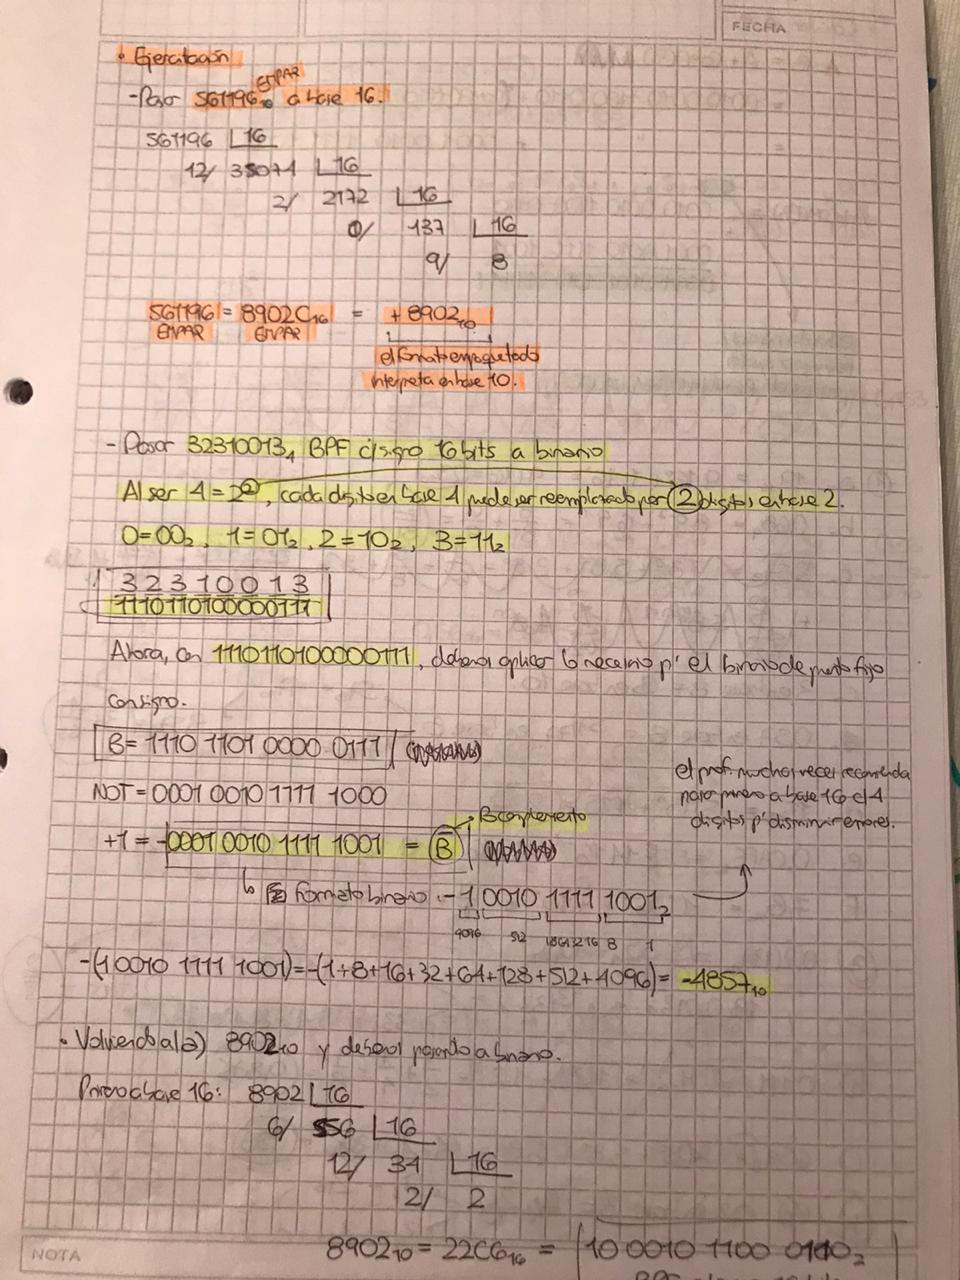 FECHA
• Ejercitación
EMPAR
- Pasar 561196₁₀ a base 16.
561196 | 16
12/ 35074 | 16
2/ 2172 | 16
0/ 137 | 16
9/ 8
561196 = 8902C₁₆ = + 8902₁₀
EMPAR EMPAR
el formato empaquetado
interpreta en base 10.
- Pasar 32310013₄ BPF c/signo 16 bits a binario
Al ser 4 = 2², cada dígito en base 4 puede ser reemplazado por 2 dígitos en base 2.
0=00₂, 1=01₂, 2=10₂, 3=11₂
3 2 3 1 0 0 1 3
1110110100000111
Ahora, con 1110110100000111, debemos aplicar lo necesario p' el binario de punto fijo
con signo.
B= 1110 1101 0000 0111
NOT = 0001 0010 1111 1000
+1 = -0001 0010 1111 1001 = B
B complemento
el prof. muchas veces recomienda
pasar primero a base 16 c/ 4
dígitos p' disminuir errores.
↳ formato binario: -1 0010 1111 1001₂
4096 512 128 64 32 16 8 1
-(1 0010 1111 1001) = -(1+8+16+32+64+128+512+4096) = -4857₁₀
• Volviendo al a) 8902₁₀ y debemos pasarlo a binario.
Primero a base 16: 8902 | 16
6/ 556 | 16
12/ 34 | 16
2/ 2
8902₁₀ = 22C6₁₆ = 10 0010 1100 0110₂
NOTA